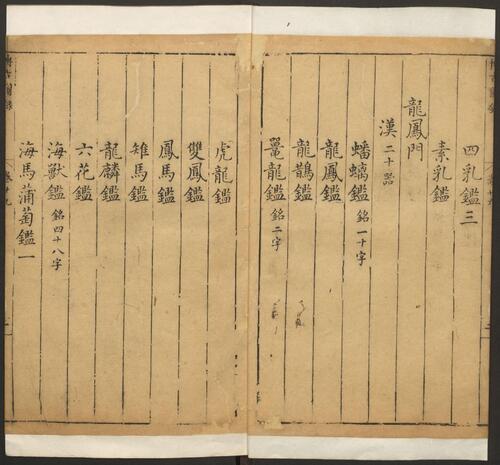 四乳鑑三
素乳鑑
龍鳳門
漢二十器
蟠螭鑑 銘一十字
龍鳳鑑
龍鵲鑑
鼉龍鑑 銘二字
虎龍鑑
雙鳳鑑
鳳馬鑑
雉馬鑑
龍麟鑑
六花鑑
海獸鑑 銘四十八字
海馬蒲萄鑑一